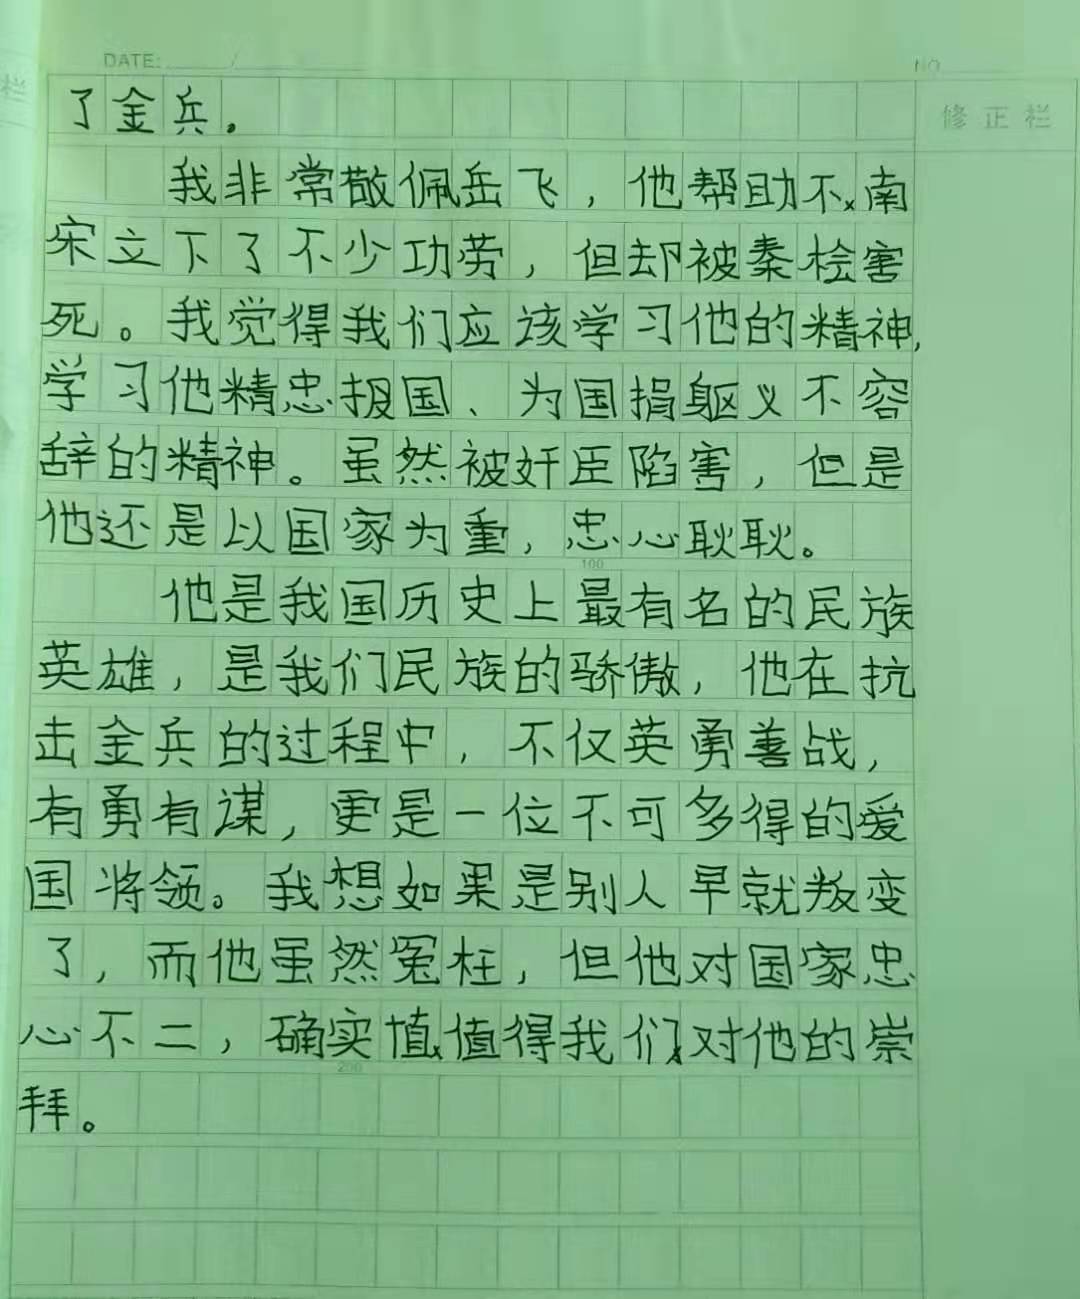 DATE: /
NO
栏
修正栏
了金兵。
我非常敬佩岳飞，他帮助不南
宋立下了不少功劳，但却被秦桧害
死。我觉得我们应该学习他的精神，
学习他精忠报国、为国捐躯义不容
辞的精神。虽然被奸臣陷害，但是
他还是以国家为重，忠心耿耿。
100
他是我国历史上最有名的民族
英雄，是我们民族的骄傲，他在抗
击金兵的过程中，不仅英勇善战，
有勇有谋，更是一位不可多得的爱
国将领。我想如果是别人早就叛变
了，而他虽然冤枉，但他对国家忠
心不二，确实值值得我们对他的崇
200
拜。